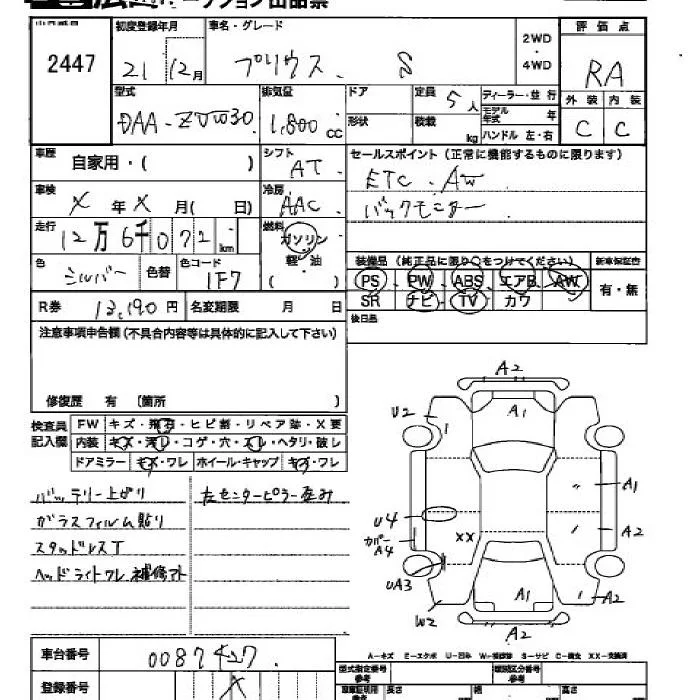 2447
初度登録年月
21 12月
車名・グレード
プリウス. S
2WD
・
4WD
評 価 点
RA
外 装 内 装
C C
型式
DAA-ZVW30
排気量
1,800 cc
ドア
形状
定員
5人
積載
kg
ディーラー・並 行
モデル年式 年
ハンドル 左・右
車歴
自家用・( )
シフト
AT
セールスポイント(正常に機能するものに限ります)
ETC . AW
バックモニター
車検
X 年 X 月( 日)
冷房
AAC
走行
12万6千072 km
燃料
ガソリン
軽・油
( )
色
シルバー
色替
色コード
1F7
装備品(純正品に限り○をつけてください)
新車保証書
PS PW ABS エアB AW
有・無
SR ナビ TV カワ
後日品
R券 13,190 円
名変期限 月 日
注意事項申告欄(不具合内容等は具体的に記入して下さい)
修復歴 有 〔箇所 〕
検査員
記入欄
FW キズ・飛石・ヒビ割・リペア跡・X要
内装 キズ・汚レ・コゲ・穴・スレ・ヘタリ・破レ
ドアミラー キズ・ワレ ホイール・キャップ キズ・ワレ
バッテリー上がり
左センターピラー歪み
ガラスフィルム貼り
スタッドレスT
ヘッドライトワレ補修アト
A2
A1
U2
A1
U4
カバー
A4
XX
A2
UA3
A1
A2
W2
A2
A-キズ E-エクボ U-凹み W-補修跡 S-サビ C-腐食 XX-交換済
車台番号
0087427
登録番号
X
型式指定番号
参考
類別区分番号
参考
長さ
幅
高さ